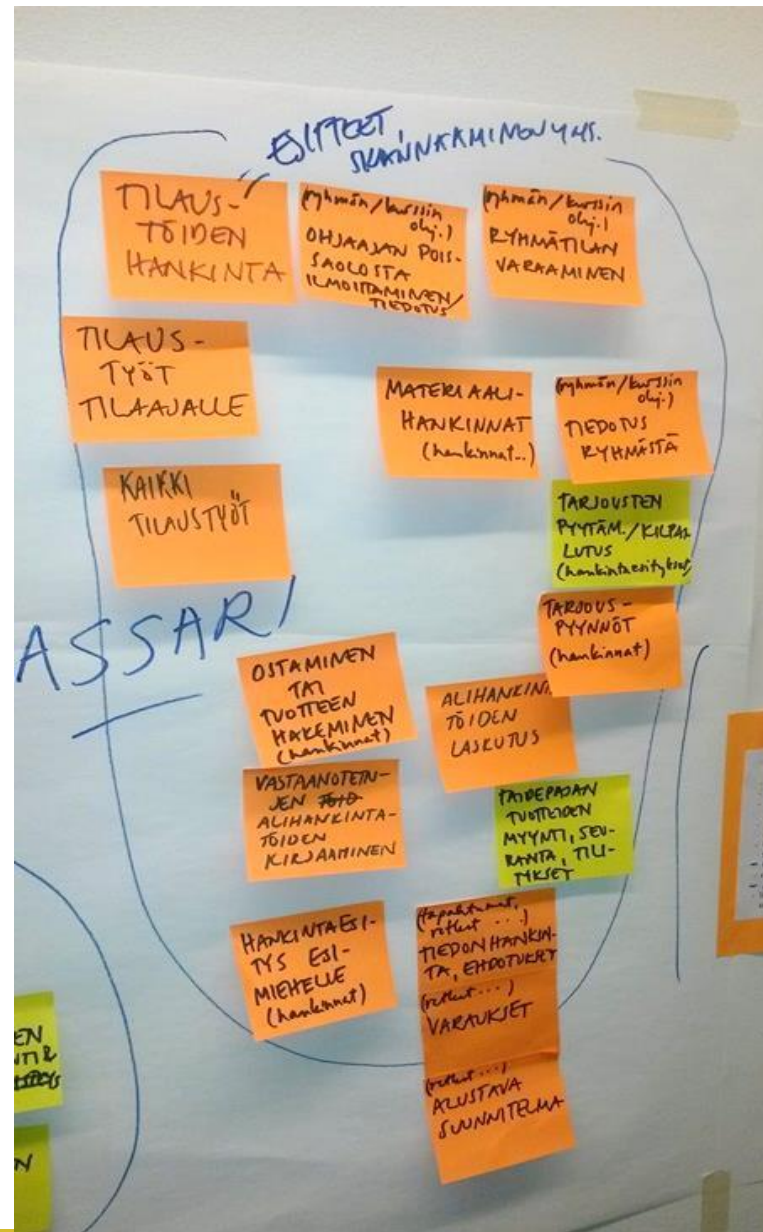 ESITTEET,
SKANNAAMINEN YMS.
TILAUS-
TÖIDEN
HANKINTA
(ryhmän/kurssin
ohj.)
OHJAAJAN POIS-
SAOLOSTA
ILMOITTAMINEN/
TIEDOTUS
(ryhmän/kurssin
ohj.)
RYHMÄTILAN
VARAAMINEN
TILAUS-
TYÖT
TILAAJALLE
MATERIAALI-
HANKINNAT
(hankinnat..)
(ryhmän/kurssin
ohj.)
TIEDOTUS
RYHMÄSTÄ
KAIKKI
TILAUSTYÖT
TARJOUSTEN
PYYTÄM./KILPAI
LUTUS
(hankintaesitykset)
TARJOUS-
PYYNNÖT
(hankinnat)
ASSARI
OSTAMINEN
TAI
TUOTTEEN
HAKEMINEN
(hankinnat)
ALIHANKINTA
TÖIDEN
LASKUTUS
VASTAANOTETTU-
JEN TÖID
ALIHANKINTA-
TÖIDEN
KIRJAAMINEN
TAIDEPAJAN
TUOTTEIDEN
MYYNTI, SEU-
RANTA, TILI-
TYKSET
HANKINTAESI-
TYS ESI-
MIEHELLE
(hankinnat)
(tapahtumat,
retket ...)
TIEDONHANKIN-
TA, EHDOTUKSET
(retket ...)
VARAUKSET
(retket ...)
ALUSTAVA
SUUNNITELMA
EN
N